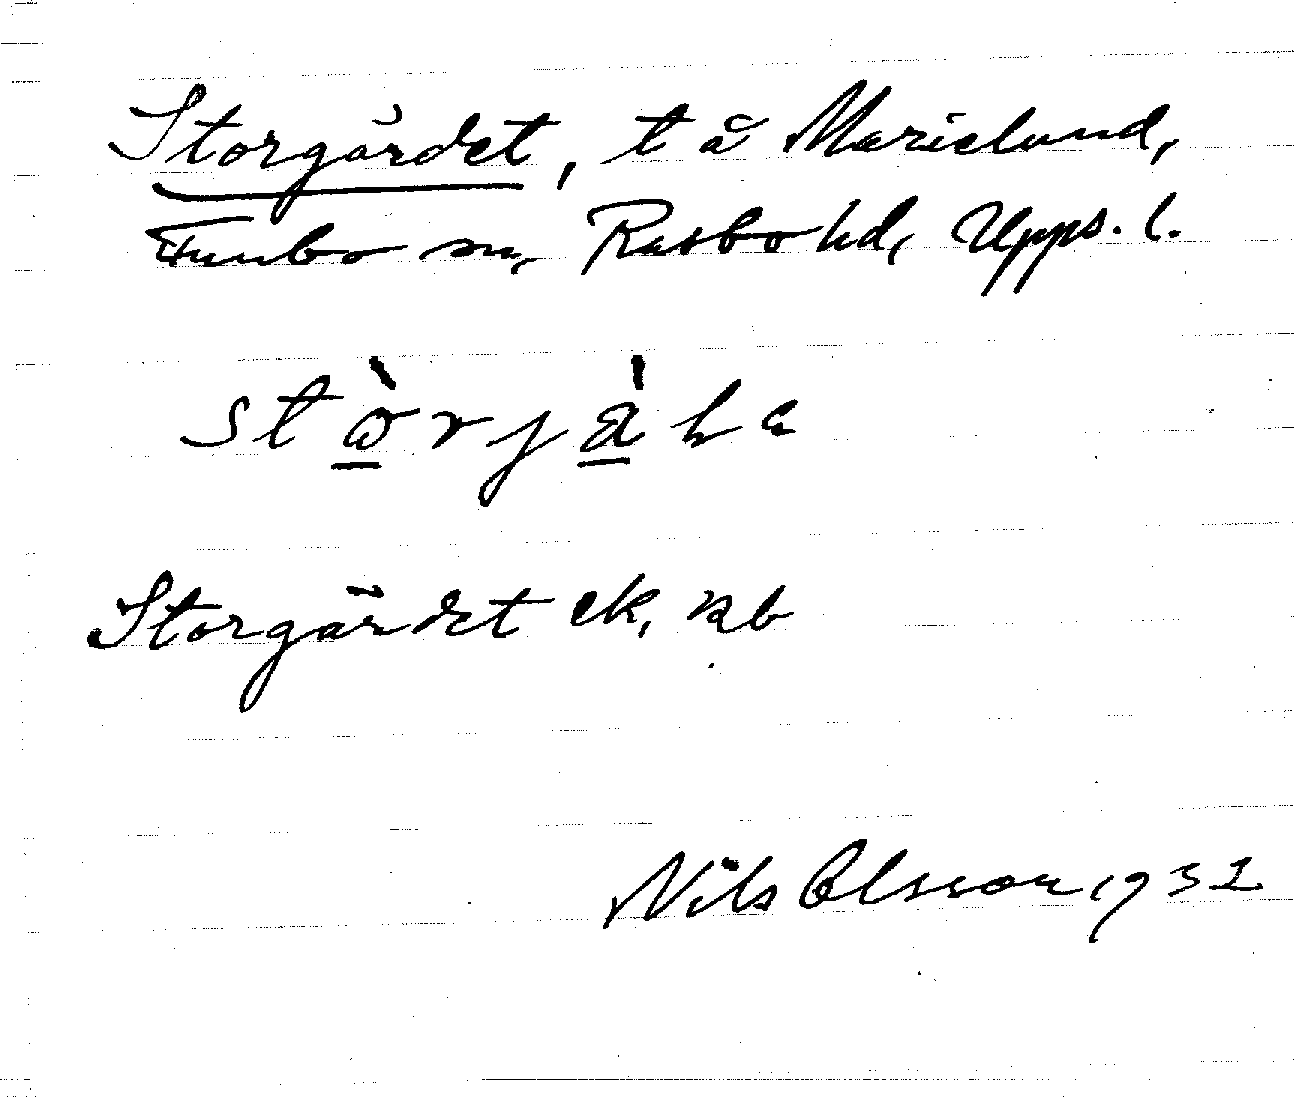 Storgärdet, t å Marielund,
Funbo sn, Rasbo hd, Upps. l.
Storgärdet ek, kb
Nils Olsson 1932